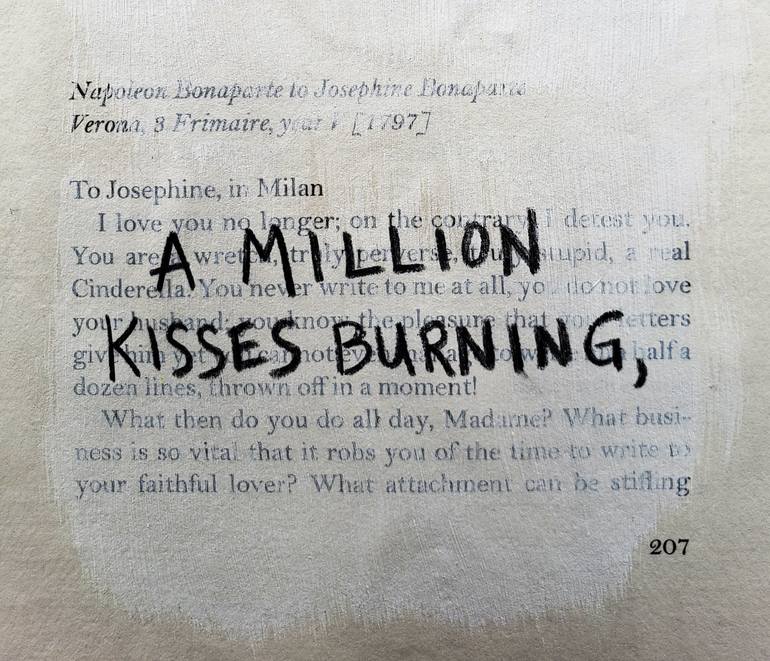 Napoleon Bonaparte to Josephine Bonaparte
Verona, 3 Frimaire, year V [1797]
To Josephine, in Milan
I love you no longer; on the contrary, I detest you.
You are a wretch, truly perverse, truly stupid, a real
A MILLION
Cinderella. You never write to me at all, you do not love
your husband; you know the pleasure that your letters
KISSES BURNING,
give him yet you cannot even manage to write him half a
dozen lines, thrown off in a moment!
What then do you do all day, Madame? What busi-
ness is so vital that it robs you of the time to write to
your faithful lover? What attachment can be stifling
207